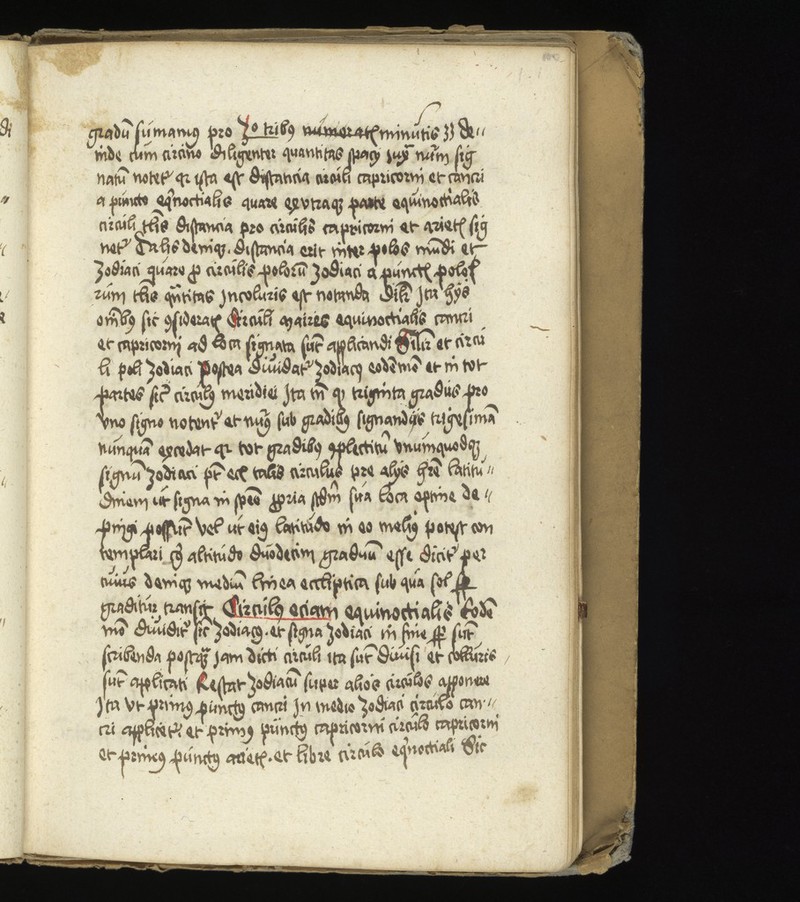 gradu̅ sumamus pro Zo tribus numerat minutis 33 de〃
inde cum circino diligenter quantitas spacij iuxa num sig
natu̅ notet qr ista est distancia circuli capricorni et cancri
a puncto eq̅noctialis quare ex utraq parte equinoctialis
circuli distancia pro circulis capricorni et arietis sig
net Talis deniq. distancia erit inter polos mu̅di et
Zodiaci quare p circulis poloru̅ Zodiaci a punctis polo
rum qu̅titas in coluris est notanda Ita hijs
om̅bus sic 9siderat Circuli maires equinoctialis cancri
et capricorni ad loca signata su̅t applicandi Similr et circu
li poli Zodiaci Postea diuidat Zodiacus eode̅ mo̅ et in tot
partes sic circulus meridiei Ita tn̅ q triginta gradus pro
vno signo notent et nu̅us sub gradibus signandus trigesima̅
nunqua̅ excedat qr tot gradibus 9plectitur vnumquodq
signu̅ Zodiaci talis circulus pre alijs latitu〃
dinem ut signa in sua loca optine de〃
pingi possu̅t vel ut eius latitudo in eo melius potest con
templari altitudo duodecim graduu̅ esse dicit per
cuius deniq mediu̅ linea eccliptica sub qua sol
graditur transit Circulus eciam equinoctialis Eode̅
mo̅ diuidit sic Zodiacus. et signa Zodiaci in fine su̅t
scribenda postq̅ Jam dicti circuli ita su̅t diuisi et colluris
su̅t applicati Restat Zodiacu̅ super alios circulos apponere
Ita vt primus punctus cancri in medio Zodiaci circulo can〃
cri applicet et primus punctus capricorni circulo capricorni
et primus punctus arietis. et libre circulo eq̅noctiali Sic